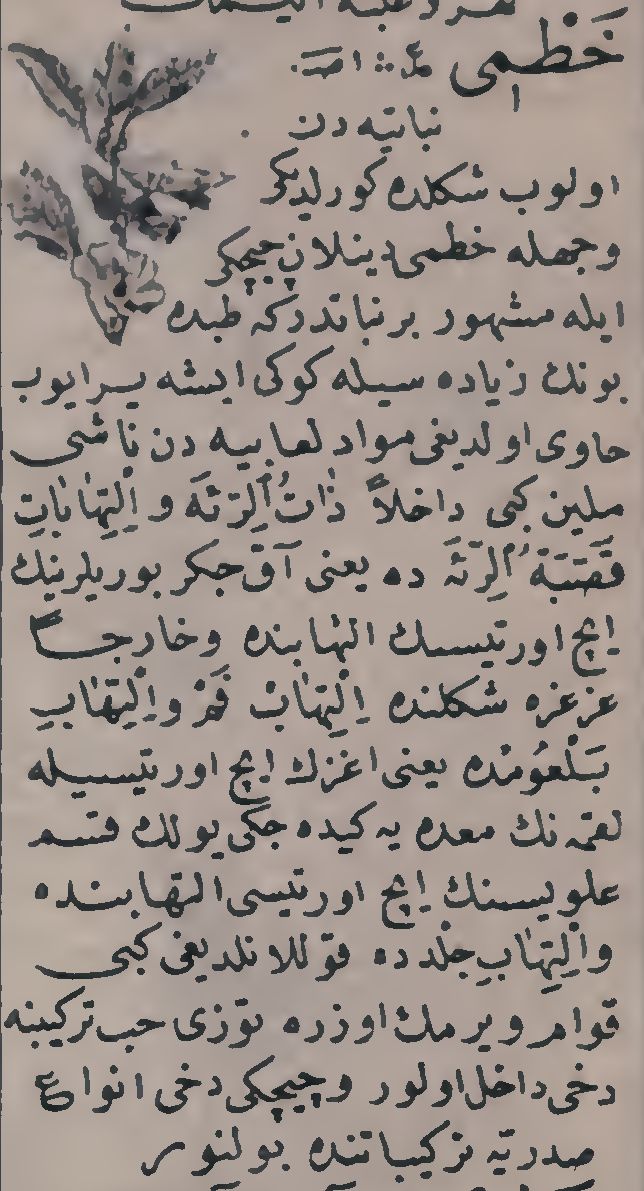 خَظْمِى ع ا صـ
نباتيه دن
اولوب شكلده كورلديكى
وجهله خطمى دينلان چيچكى
ايله مشهور بر نباتدركه طبده
بونك زياده سيله كوكى ايشه يرايوب
حاوى اولديغى مواد لعابيه دن ناشى
ملين كبى داخلاً ذٰاتُ اَلرّئَه و اِلْتِهٰابٰاتِ
قَصَبَةُ الرّئَه ده يعنى آق جكر بوريلرينك
ايچ اورتيسنك التهابنده وخارجاً
غرغره شكلنده اِلْتِهٰابْ فَمْ و اِلْتِهٰابِ
بَلْعُومْده يعنى اغزك ايچ اورتيسيله
لقمه نك معده يه كيده جكى يولك قسم
علويسنك ايچ اورتيسى التهابنده
و اِلْتِهٰابِ جلدده قوللانلديغى كبى
قوام ويرمك اوزره توزى حب تركيبنه
دخى داخل اولور وچيچكى دخى انواع
صدريه تركيباتنده بولنور